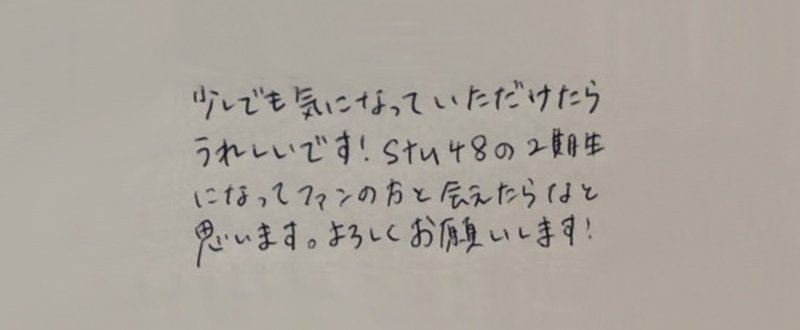 少しでも気になっていただけたら
うれしいです！STU48の2期生
になってファンの方と会えたらなと
思います。よろしくお願いします！